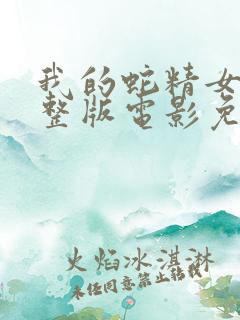 我的蛇精女
整版电影免
火焰冰淇淋
未经同意禁止转载